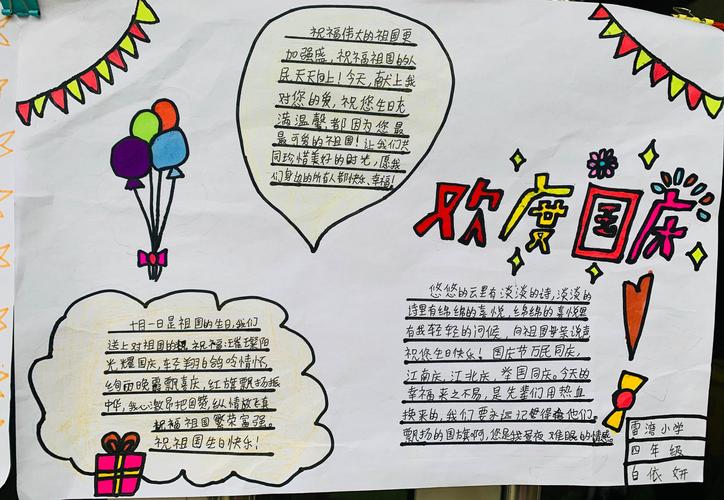 祝福伟大的祖国更
加强盛，祝福祖国的人
民天天向上！今天，献上我
对您的爱，祝您生日充
满温馨，都因为您最
最可爱的祖国！让我们共
同珍惜美好的时光，愿我
们身边的所有人都快乐、幸福！
欢度国庆
十月一日是祖国的生日，我们
送上对祖国的祝福：璀璨阳
光耀国庆，轻翔白鸽吟情怀，
绚丽晚霞飘喜庆，红旗飘扬振
中华，我心激昂把国赞，纵情放飞真
祝福祖国繁荣富强。
祝祖国生日快乐！
悠悠的云里有淡淡的诗，淡淡的
诗里有绵绵的喜悦，绵绵的喜悦里
有我轻轻的问候，向祖国母亲说声
祝您生日快乐！国庆节万民同庆，
江南庆，江北庆，举国同庆。今天的
幸福来之不易，是先辈们用热血
换来的，我们要永远记他们。
飘扬的国旗啊，您是我昼夜难眠的情感
雷湾小学
四年级
白依妍